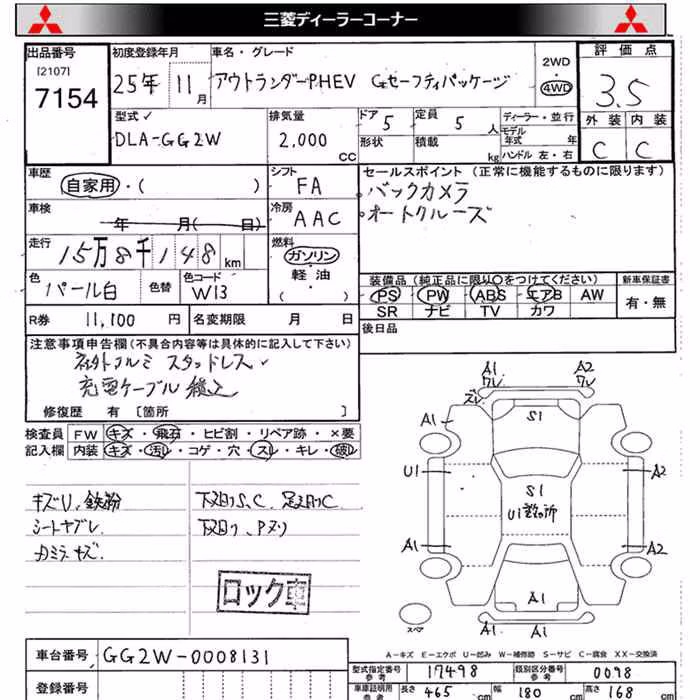 三菱ディーラーコーナー
出品番号
[2107]
7154
初度登録年月
25年 11月
車名・グレード
アウトランダーPHEV Gセーフティパッケージ
2WD
4WD
評価点
3.5
外装 内装
C C
型式
DLA-GG2W
排気量
2,000 cc
ドア 5
形状
定員 5 人
積載 kg
ディーラー・並行
モデル年式 年
ハンドル 左・右
車歴
自家用・( )
シフト
FA
車検
年 月( 日)
冷房
AAC
走行
15万8千148 km
燃料
ガソリン
軽・油
( )
色
パール白
色替
色コード
W13
セールスポイント (正常に機能するものに限ります)
バックカメラ
オートクルーズ
装備品 (純正品に限り○をつけてください)
PS PW ABS エアB AW
SR ナビ TV カワ
新車保証書
有・無
R券 11,100 円
名変期限 月 日
後日品
注意事項申告欄(不具合内容等は具体的に記入して下さい)
スタッドレス
充電ケーブル 積込
修復歴 有 [箇所 ]
検査員記入欄
FW キズ・飛石・ヒビ割・リペア跡・×要
内装 キズ・汚レ・コゲ・穴・スレ・キレ・破レ
キズU、鉄粉
シートヤブレ
下廻りS、C
下廻り、Pヌリ
ロック車
A1 A2
ワレ ワレ
ズレ
A1
S1
U1 A2
S1
U1数ヶ所
A1 A2
A1
A1 A1
スペア
A-キズ E-エクボ U-凹み W-補修跡 S-サビ C-腐食 XX-交換済
車台番号 GG2W-0008131
登録番号
型式指定番号 参考 17498
類別区分番号 参考 0098
車車証明用 参考 長さ 465 cm 幅 180 cm 高さ 168 cm